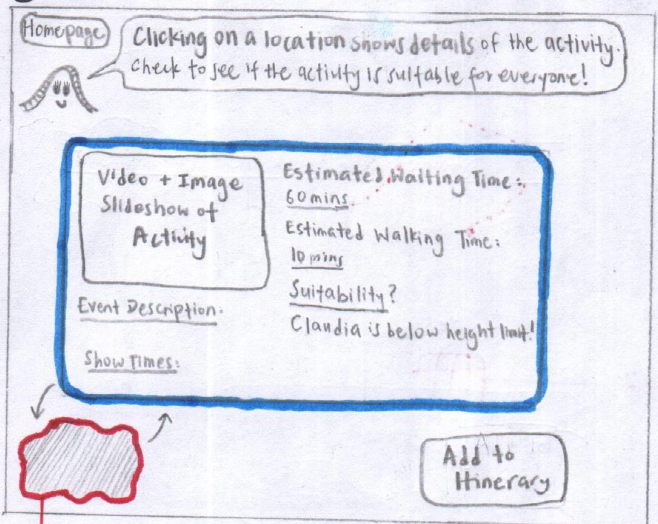 Homepage
Clicking on a location shows details of the activity.
Check to see if the activity is suitable for everyone!
Video + Image
Slideshow of
Activity
Event Description:
Show Times:
Estimated Waiting Time:
60 mins
Estimated Walking Time:
10 mins
Suitability?
Claudia is below height limit!
Add to
Itinerary